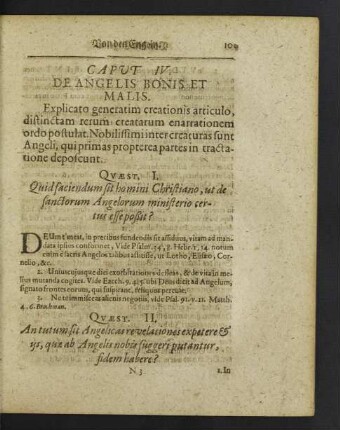 Von den Engeln. 101
CAPUT IV.
DE ANGELIS BONIS ET
MALIS.
Explicato generatim creationis articulo,
distinctam rerum creatarum enarrationem
ordo postulat. Nobilissimi inter creaturas sunt
Angeli, qui primas propterea partes in tracta-
tione deposcunt.
QVÆST. I.
Quid faciendum sit homini Christiano, ut de
sanctorum Angelorum ministerio cer-
tus esse possit?
Deum timeat, in precibus fundendis sit assiduus, vitam ad man-
data ipsius conformet, Vide Psalm. 34, 8. Hebr. 1, 14. notum
enim est actis Angelos talibus astitisse, ut Lotho, Eliseo, Cor-
nelio, &c.
2. Uniuscujusque diei exorbitationes defleat, & de vita in me-
lius mutanda cogitet. Vide Ezech. 9, 4. ubi Deus dicit ad Angelum,
signato frontes eorum, qui suspirant, &
3. Ne te immisceas alienis negotiis, vide Psal. 91. v. 11. Matth.
4, 6.
QVÆST. II.
An tutum sit Angelicas revelationes expetere &
ijs, quæ ab Angelis nobis suggeri putantur,
fidem habere?
N 3 1. In